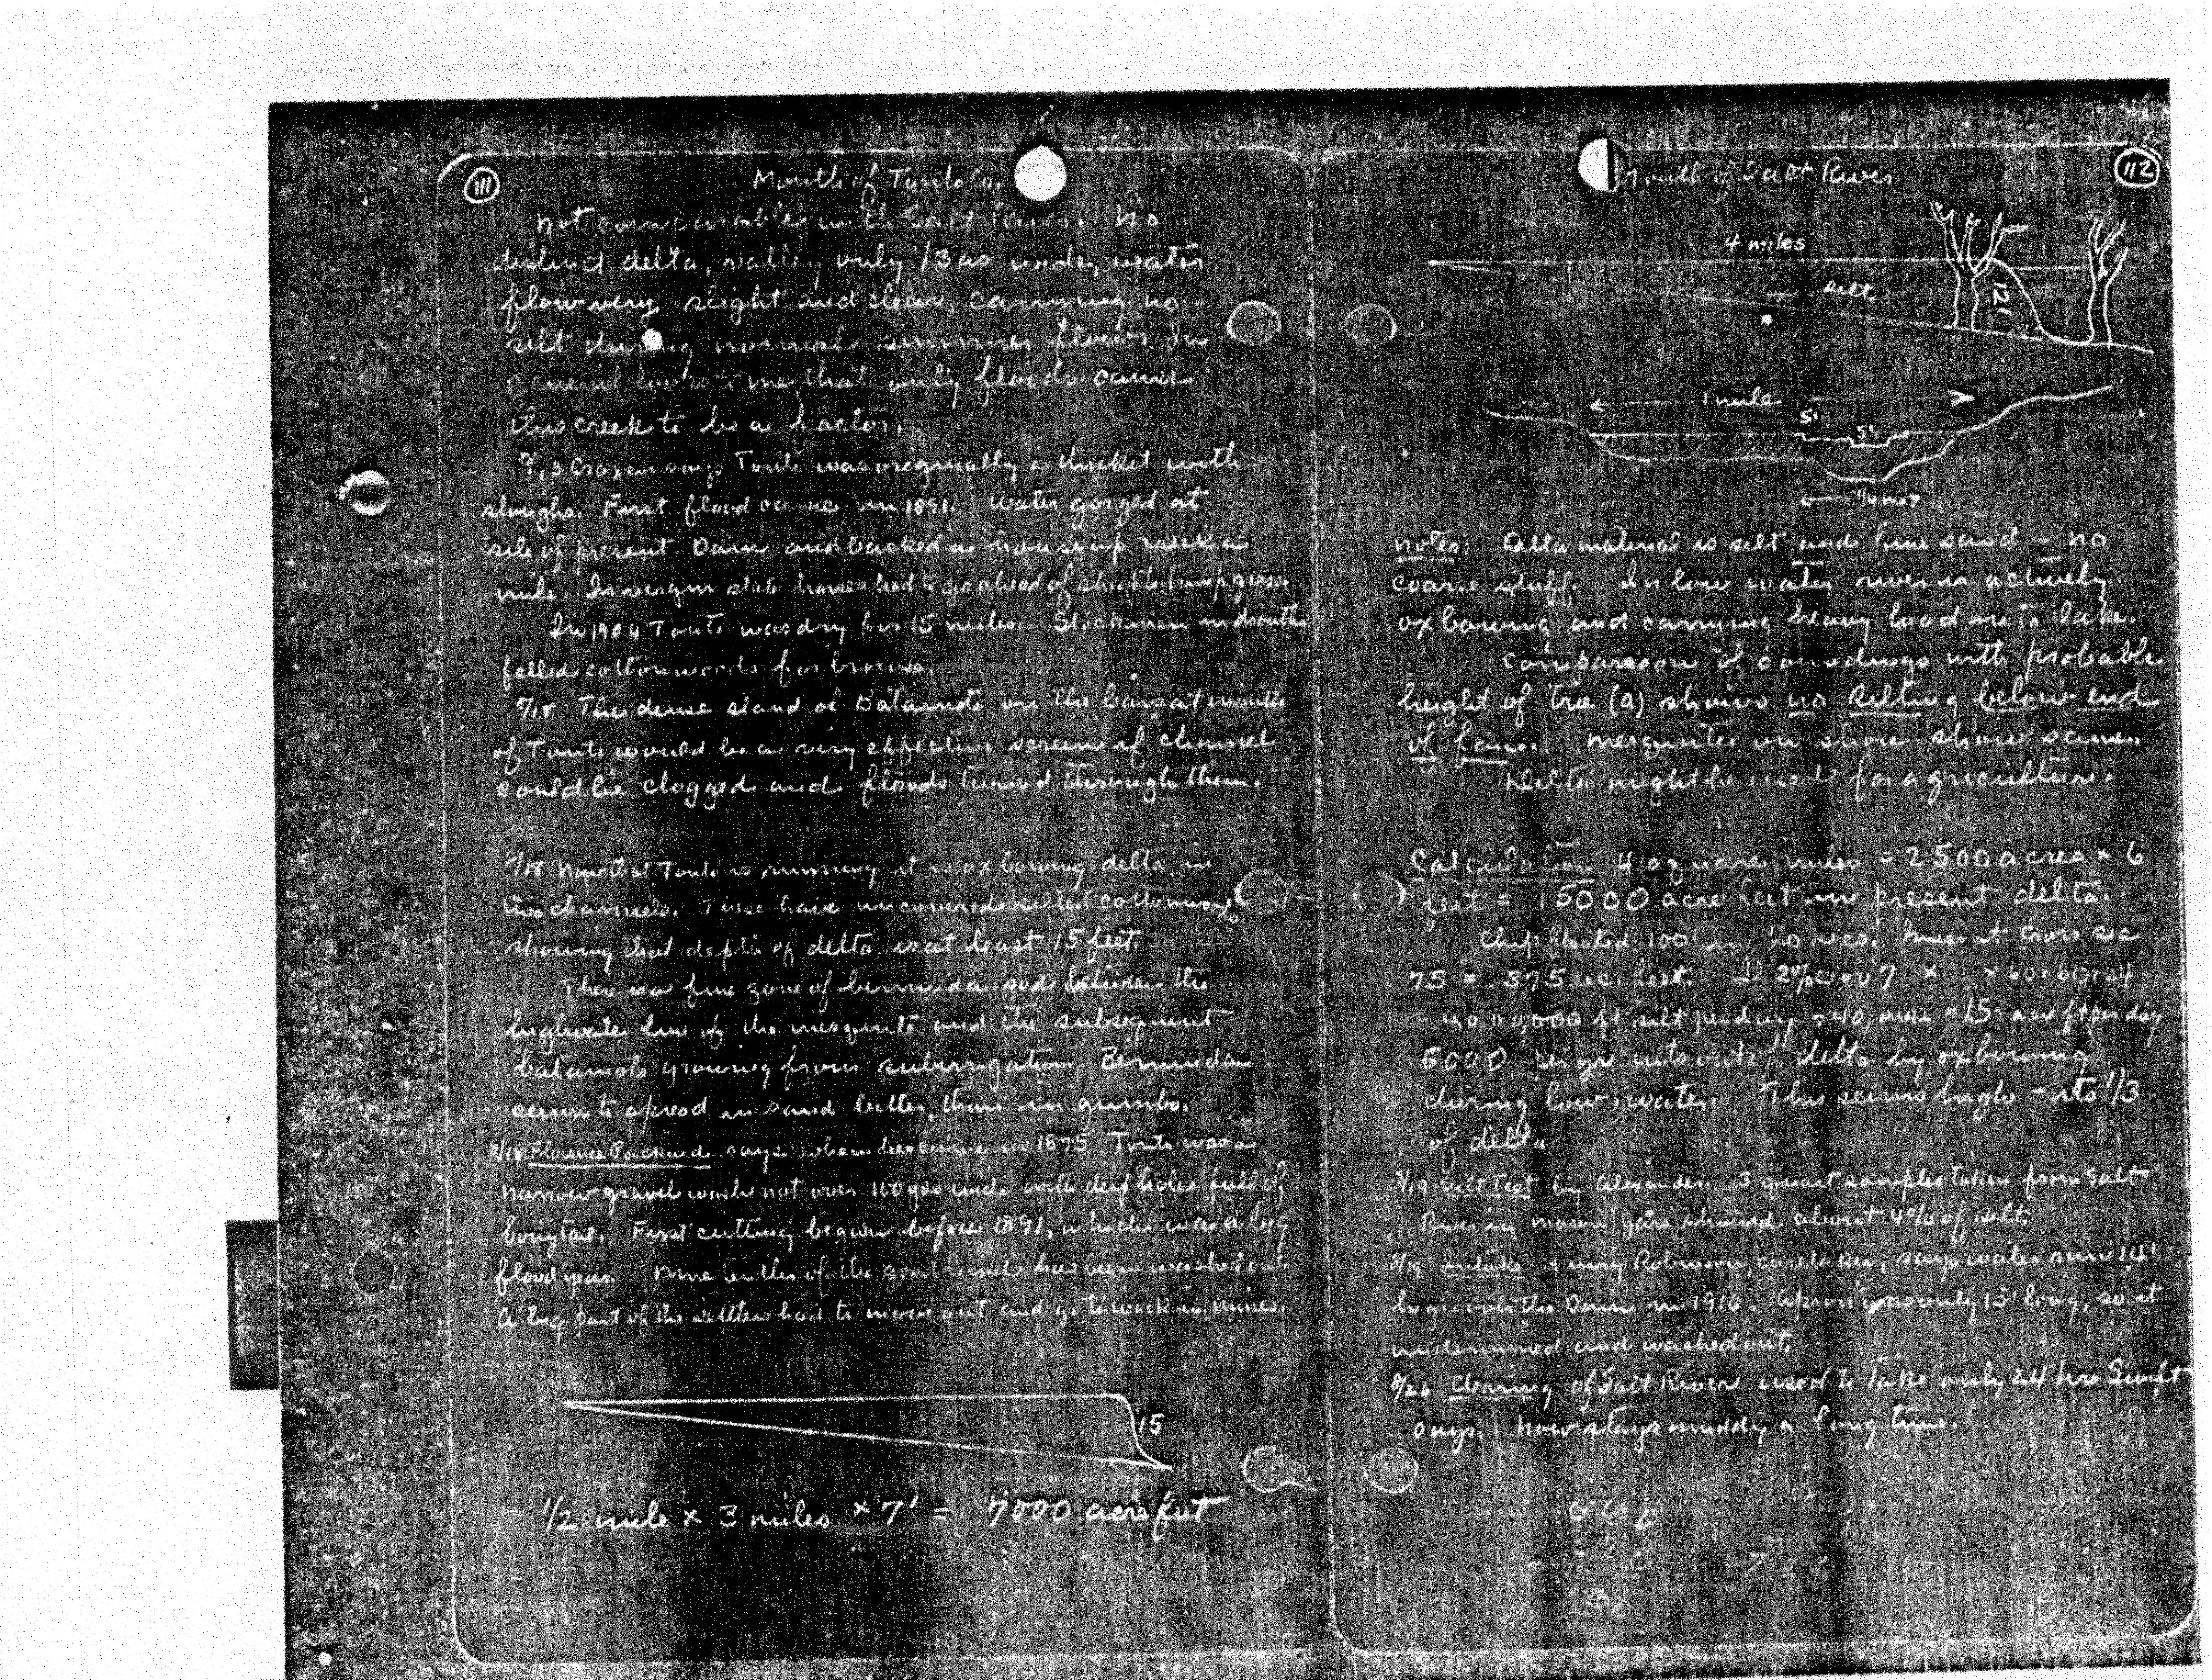 111
Mouth of Tonto Cr.
Not comparable with Salt River. No
distinct delta, valley only 1/3 as wide, water
flow very slight and clear, carrying no
silt during normal summer flow. In
general that only floods cause
this creek to be a factor.
Cragen says Tonto was originally a thicket with
sloughs. First flood came in 1891. Water gorged at
site of present Dam and backed a house up creek a
mile. In virgin state horses had to go ahead of sheep to tramp grass.
In 1904 Tonto was dry for 15 miles. Stockmen in drouths
felled cottonwoods for browse.
8/18 The dense stand of Batamote on the bars at mouth
of Tonto would be a very effective screen if channel
could be clogged and floods turned through them.
8/18 Now that Tonto is running it is oxbowing delta in
two channels. These have uncovered silted cottonwoods
showing that depth of delta is at least 15 feet.
There is a fine zone of bermuda sod between the
highwater line of the mesquite and the subsequent
batamote growing from subirrigation. Bermuda
seems to spread in sand better than in gumbo.
8/18 Florence Packard says when he came in 1875 Tonto was a
narrow gravel wash not over 100 yds wide with deep holes full of
bonytail. First cutting began before 1891, which was a big
flood year. Nine tenths of the good land has been washed out.
A big part of the settlers had to move out and go to work in mines.
15
1/2 mile x 3 miles x 7' = 7000 acre feet
112
Mouth of Salt River
4 miles
silt
12'
1 mile
5'
5'
1/4 m
Notes: Delta material is silt and fine sand - no
coarse stuff. In low water river is actively
oxbowing and carrying heavy load into lake.
Comparison of soundings with probable
height of tree (a) shows no silting below end
of fan. Mesquites on shore show same.
Delta might be used for agriculture.
Calculation 4 square miles = 2500 acres x 6
feet = 15000 acre feet in present delta.
Chip floated 100' in 20 secs. cross sec
75 = 375 sec. feet. If 2% or 7 x x 60 x 60 x 24
ft silt per day = 15 acre ft per day
5000 per yr cuts out of delta by oxbowing
during low water. This seems high - its 1/3
of delta
8/19 Silt Test by Alexander. 3 quart samples taken from Salt
River in mason jars showed about 4% of silt.
8/19 Intake Henry Robinson, caretaker, says water runs 14'
high over the Dam in 1916. Apron was only 15' long, so it
undermined and washed out.
8/26 Clearing of Salt River used to take only 24 hrs Swift
says. Now stays muddy a long time.